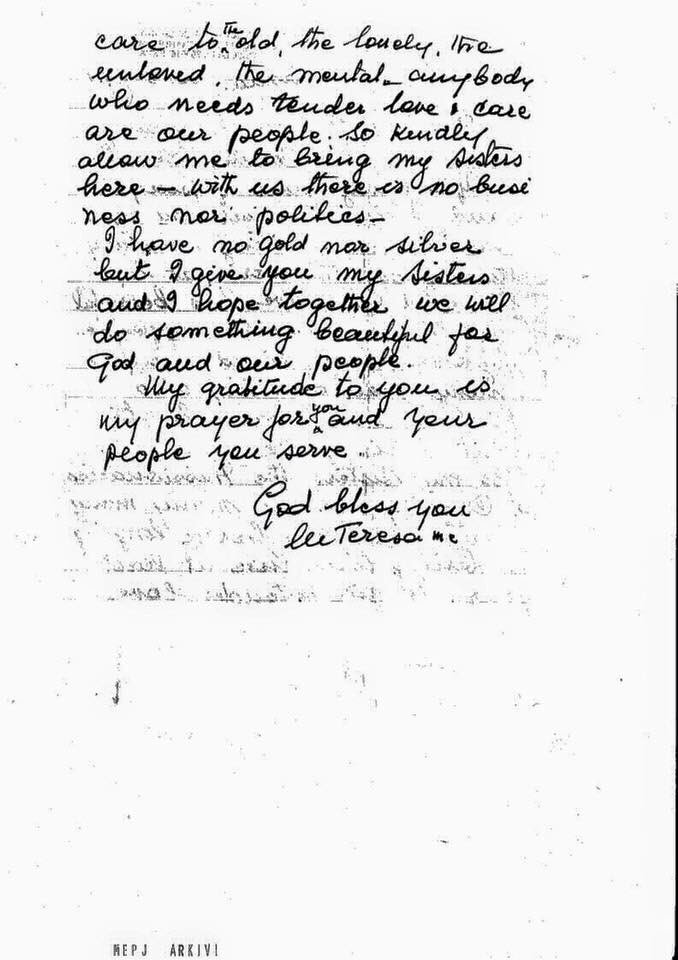 care to the old, the lonely, the
unloved, the mental - anybody
who needs tender love & care
are our people. So kindly
allow me to bring my sisters
here – with us there is no busi
ness nor politics –
I have no gold nor silver
but I give you my Sisters
and I hope together we will
do something beautiful for
God and our people.
My gratitude to you is
my prayer for you and your
people you serve.
God bless you
M Teresa mc
MEPJ ARKIVI